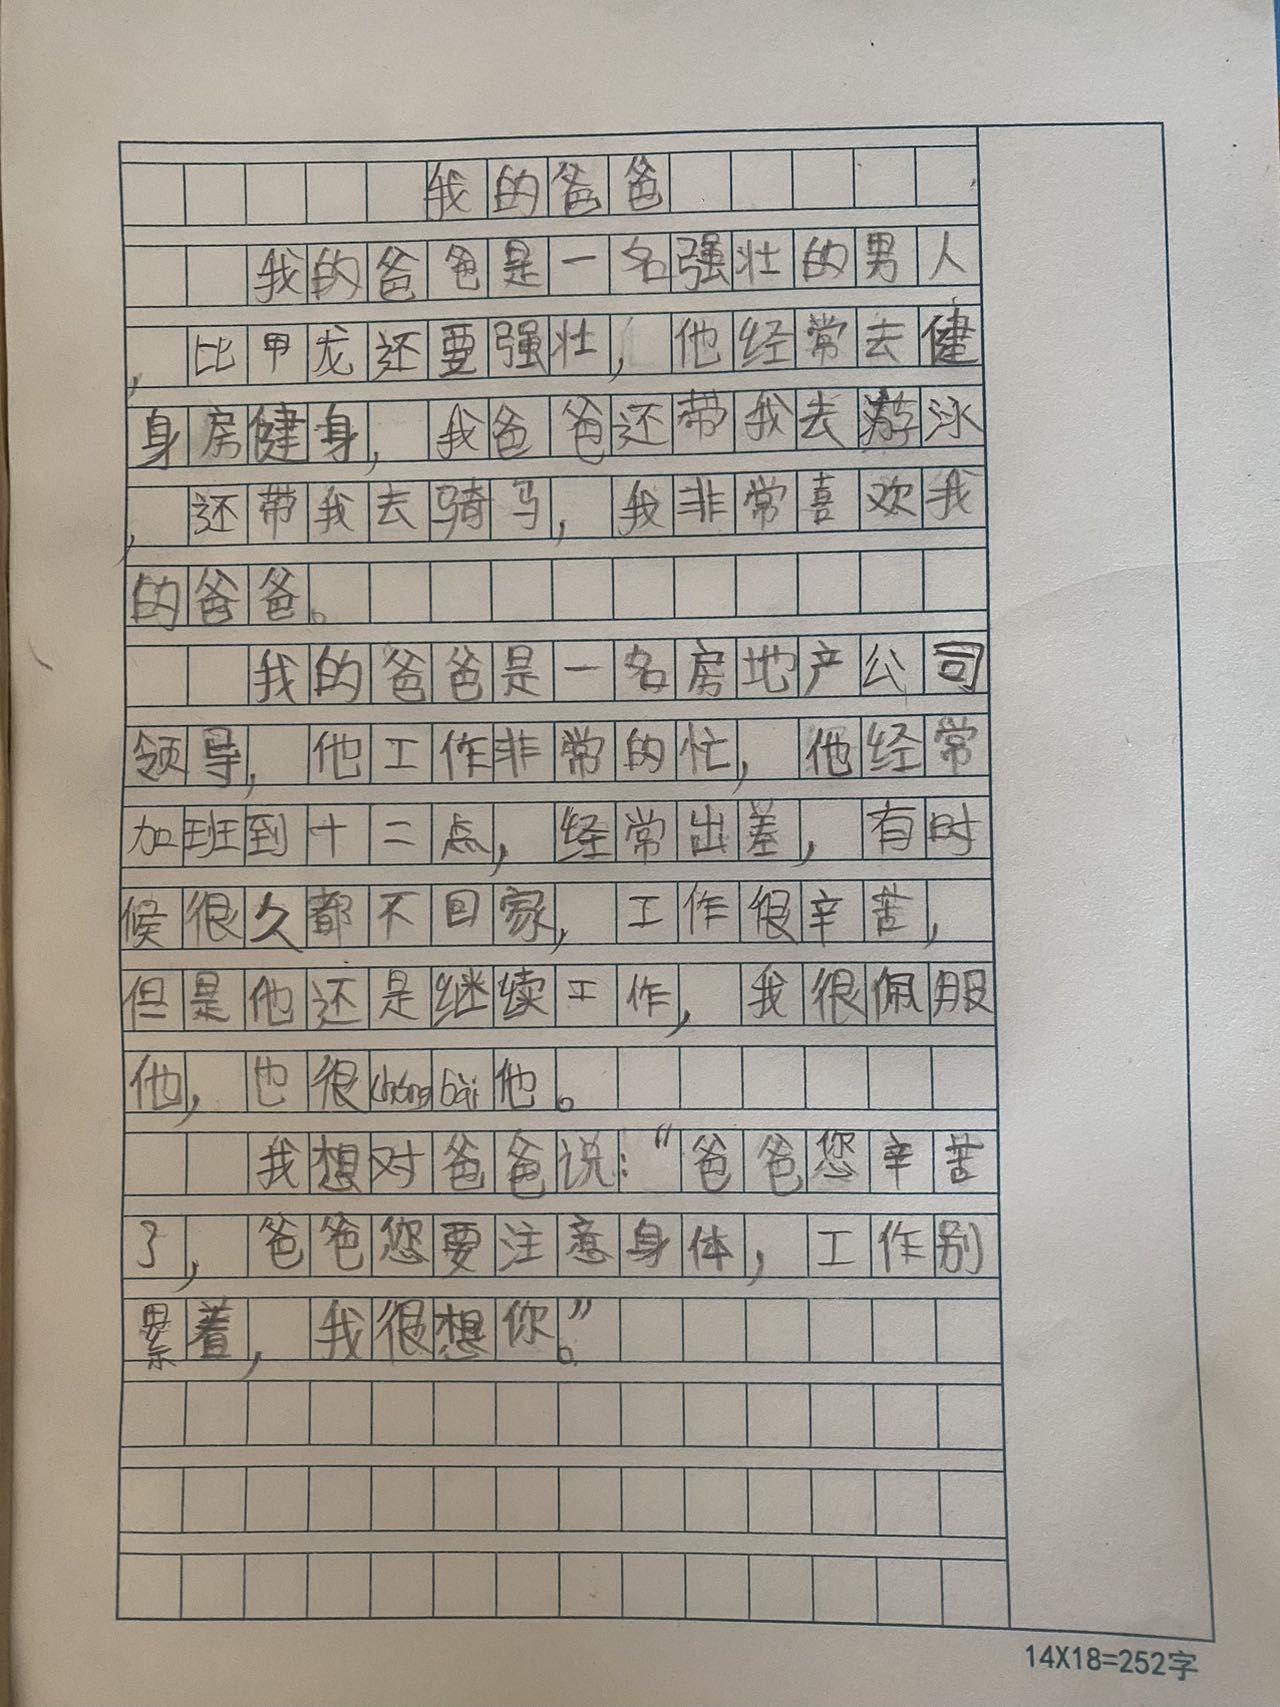 我的爸爸
我的爸爸是一名强壮的男人
，比甲龙还要强壮，他经常去健
身房健身，我爸爸还带我去游泳
，还带我去骑马，我非常喜欢我
的爸爸。
我的爸爸是一名房地产公司
领导，他工作非常的忙，他经常
加班到十二点，经常出差，有时
候很久都不回家，工作很辛苦，
但是他还是继续工作，我很佩服
他，也很chóng bài他。
我想对爸爸说：“爸爸您辛苦
了，爸爸您要注意身体，工作别
累着，我很想你。”
14X18=252字